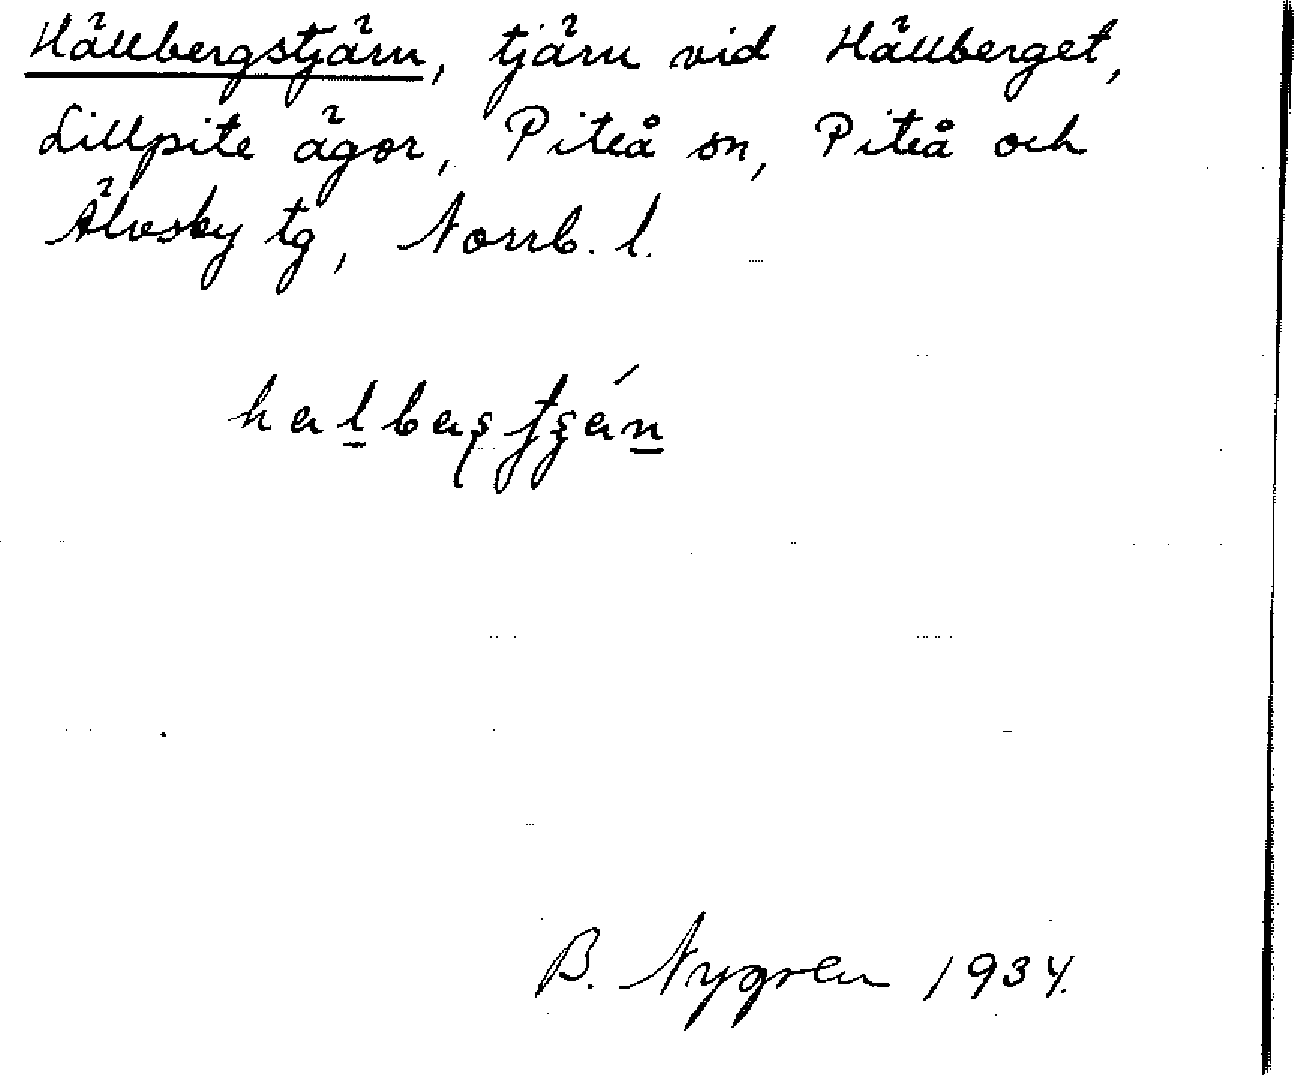 Hällbergstjärn, tjärn vid Hällberget,
Lillpite ägor, Piteå sn, Piteå och
Älvsby tg, Norrb. l.
B. Nygren 1934.